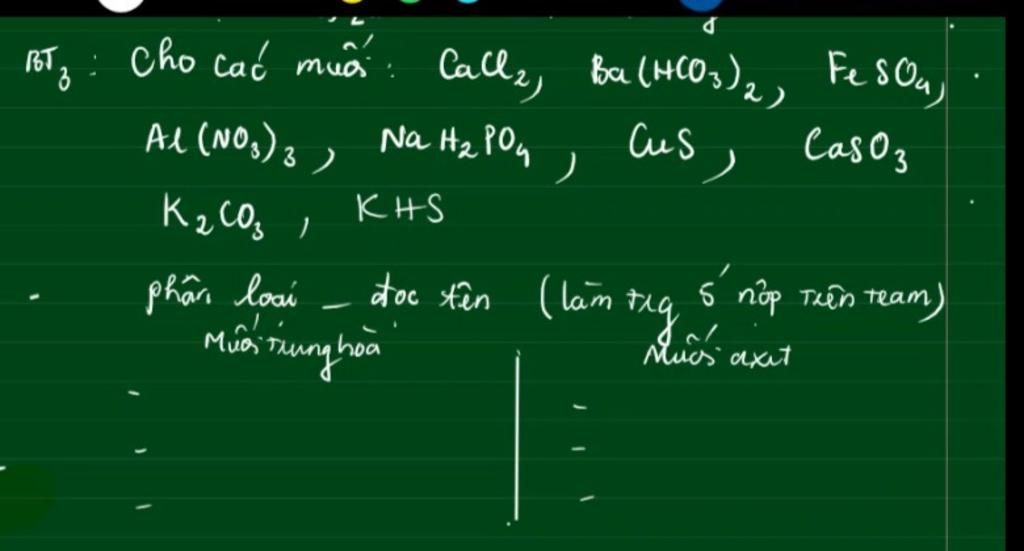 BT3 : Cho các muối : CaCl2, Ba(HCO3)2, FeSO4,
Al(NO3)3, NaH2PO4, CuS, CaSO3
K2CO3, KHS
- phân loại - đọc tên (làm trg 5' nộp trên team)
Muối trung hoà | Muối axit
- -
- -
- -